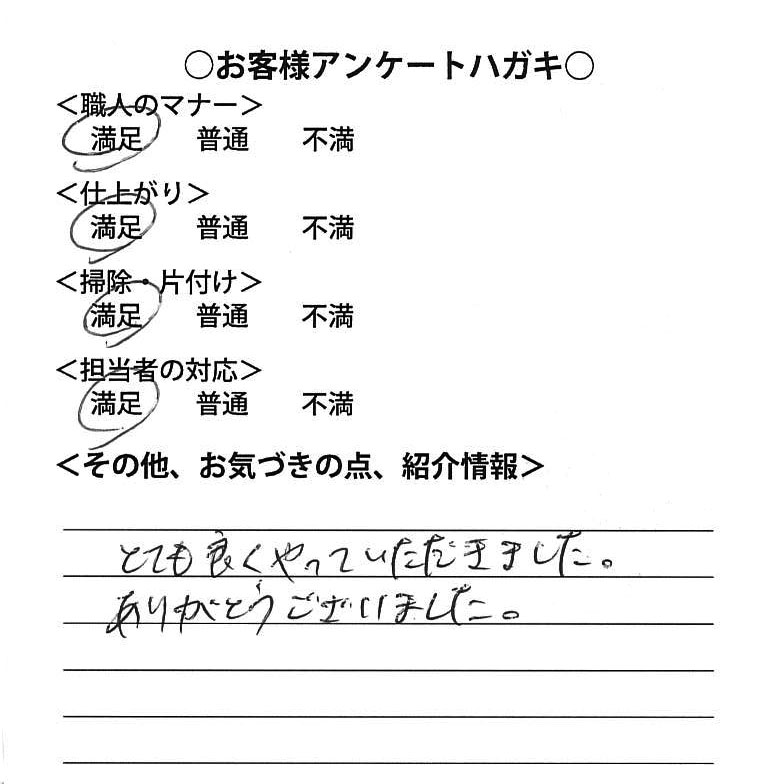 ○お客様アンケートハガキ○
＜職人のマナー＞
満足 普通 不満
＜仕上がり＞
満足 普通 不満
＜掃除・片付け＞
満足 普通 不満
＜担当者の対応＞
満足 普通 不満
＜その他、お気づきの点、紹介情報＞
とても良くやっていただきました。
ありがとうございました。